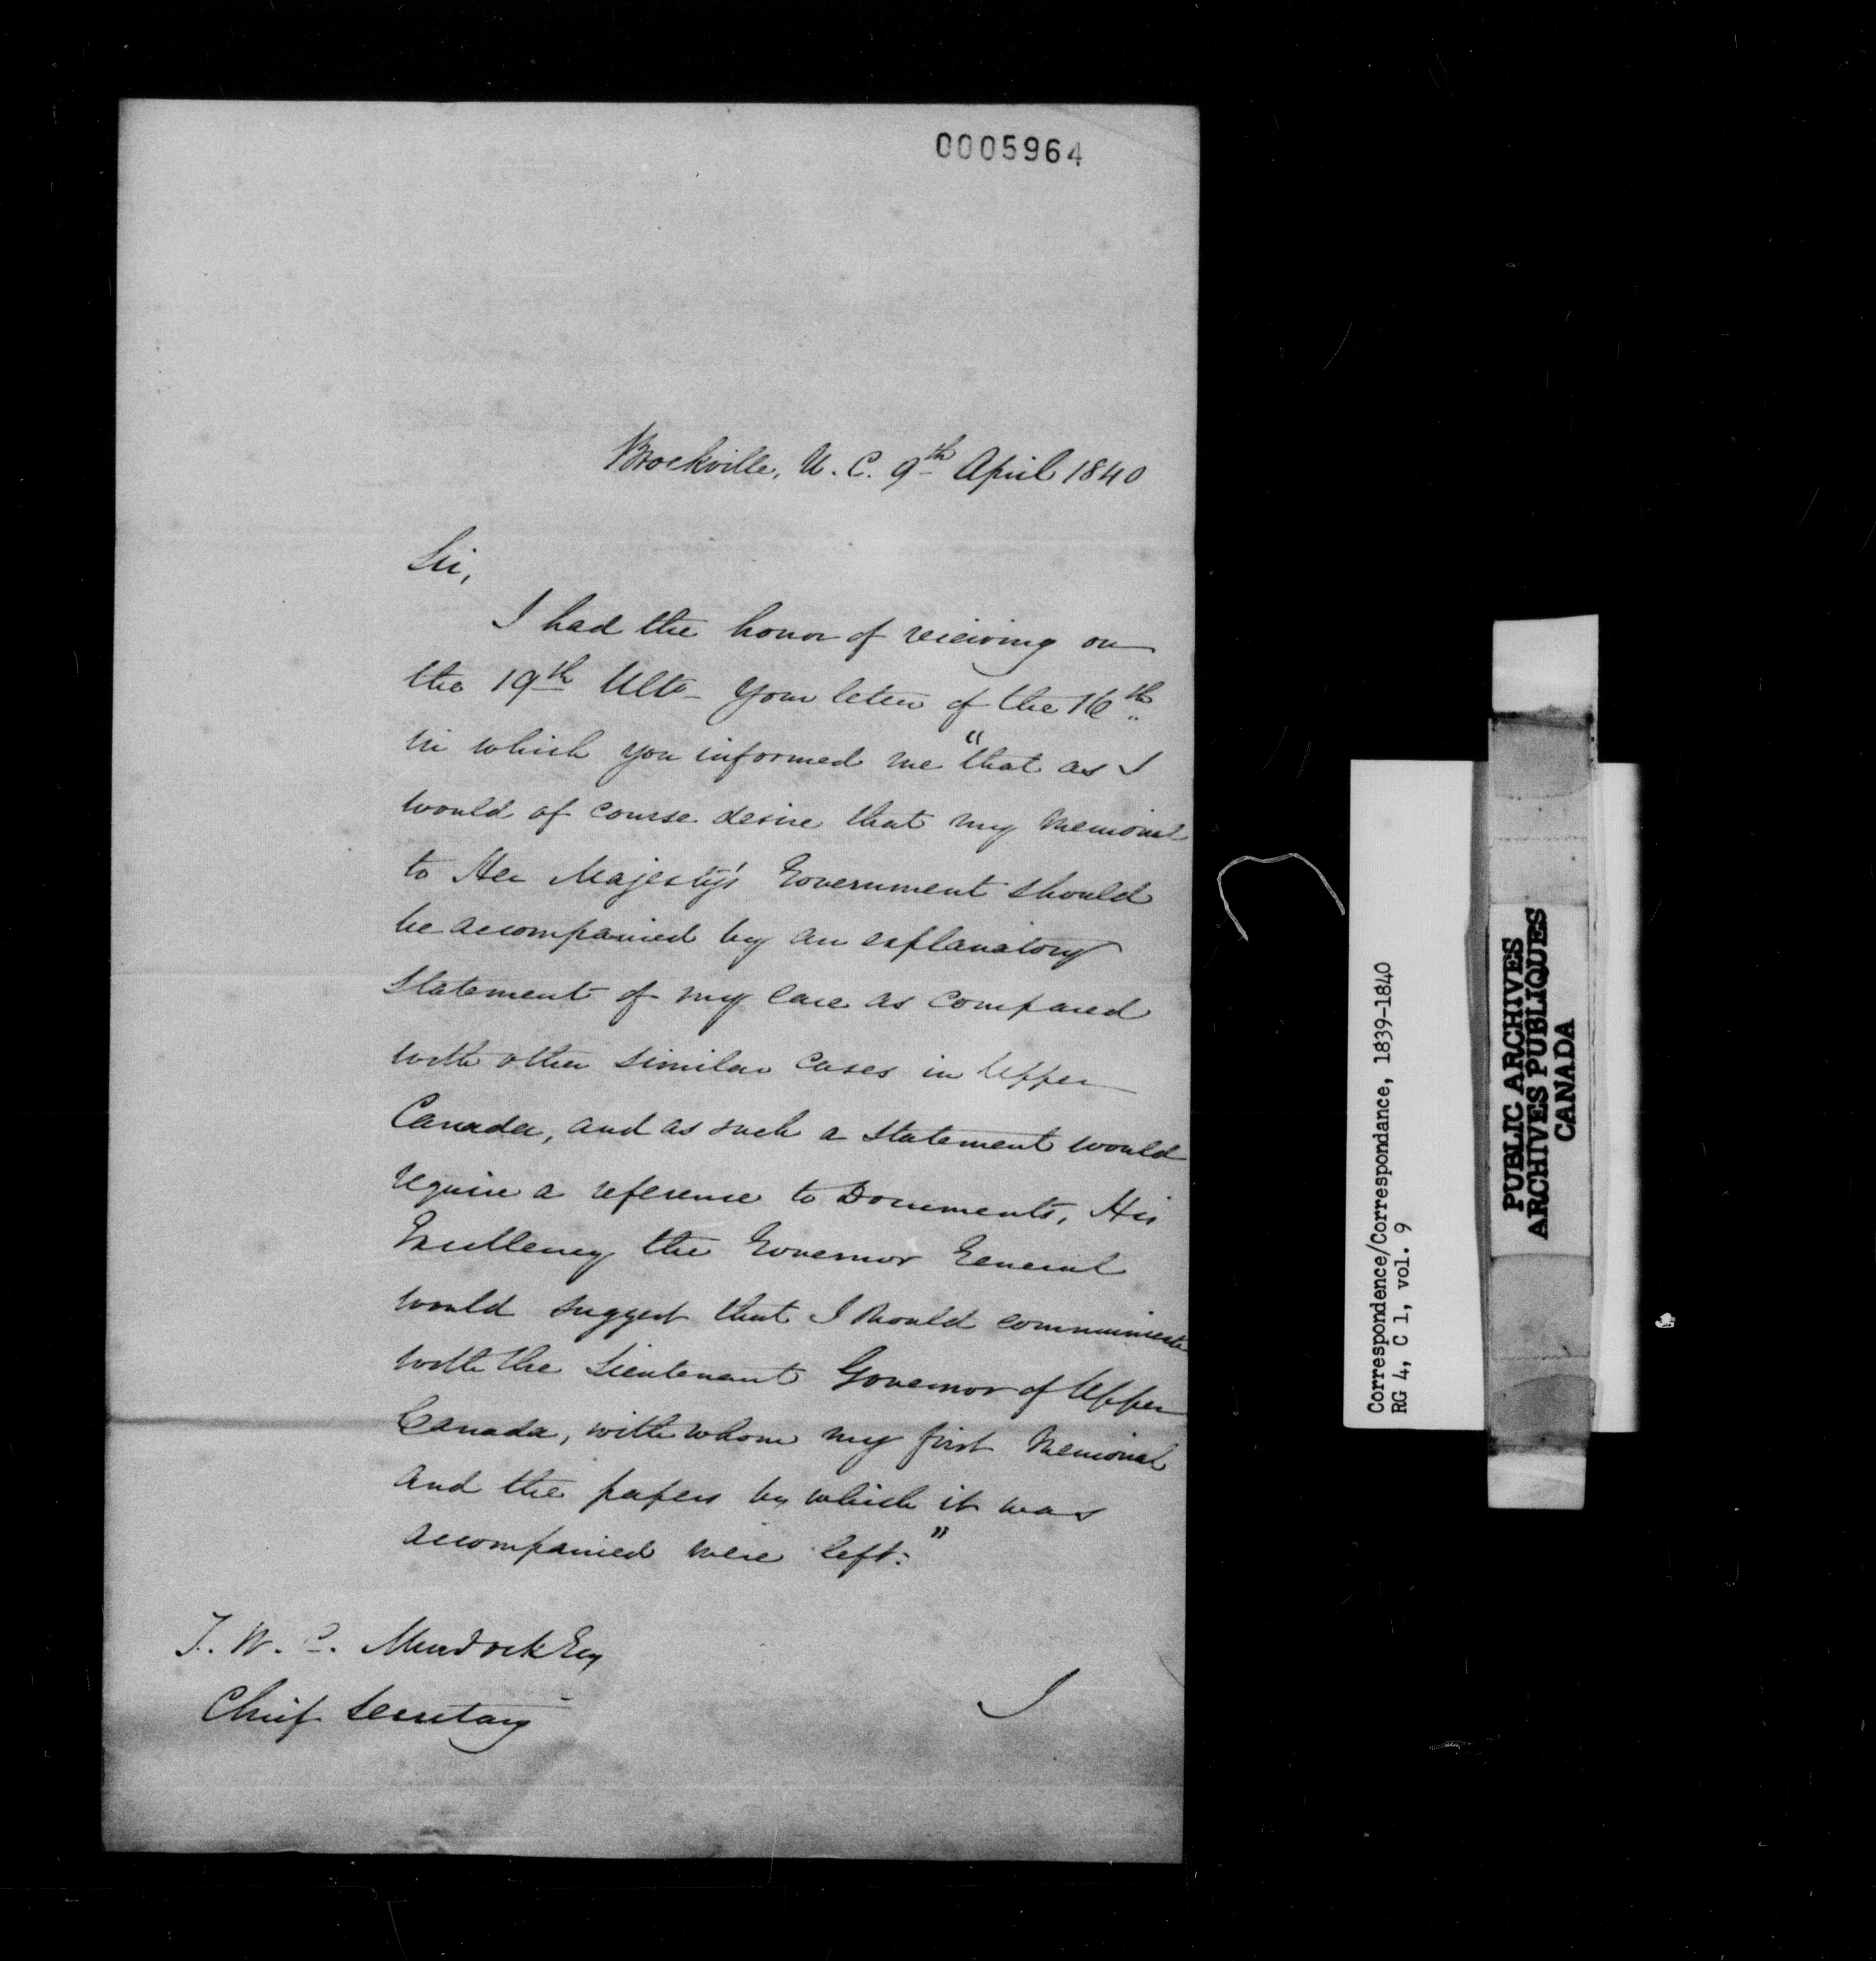 0005964
Brockville, U. C. 9th April 1840
Sir,
I had the honor of receiving on
the 19th Ulto- Your letter of the 16th
in which you informed me "that as I
would of course desire that my Memorial
to Her Majesty's Government should
be accompanied by an explanatory
Statement of my Case as compared
with other similar Cases in Upper
Canada, and as such a Statement would
require a reference to Documents, His
Excellency the Governor General
would suggest that I should communicate
with the Lieutenant Governor of Upper
Canada, with whom my first Memorial
and the papers by which it was
accompanied were left."
T. W. C. Murdock Esq
Chief Secretary
I
Correspondence/Correspondance, 1839-1840
RG 4, C 1, vol. 9
PUBLIC ARCHIVES
ARCHIVES PUBLIQUES
CANADA